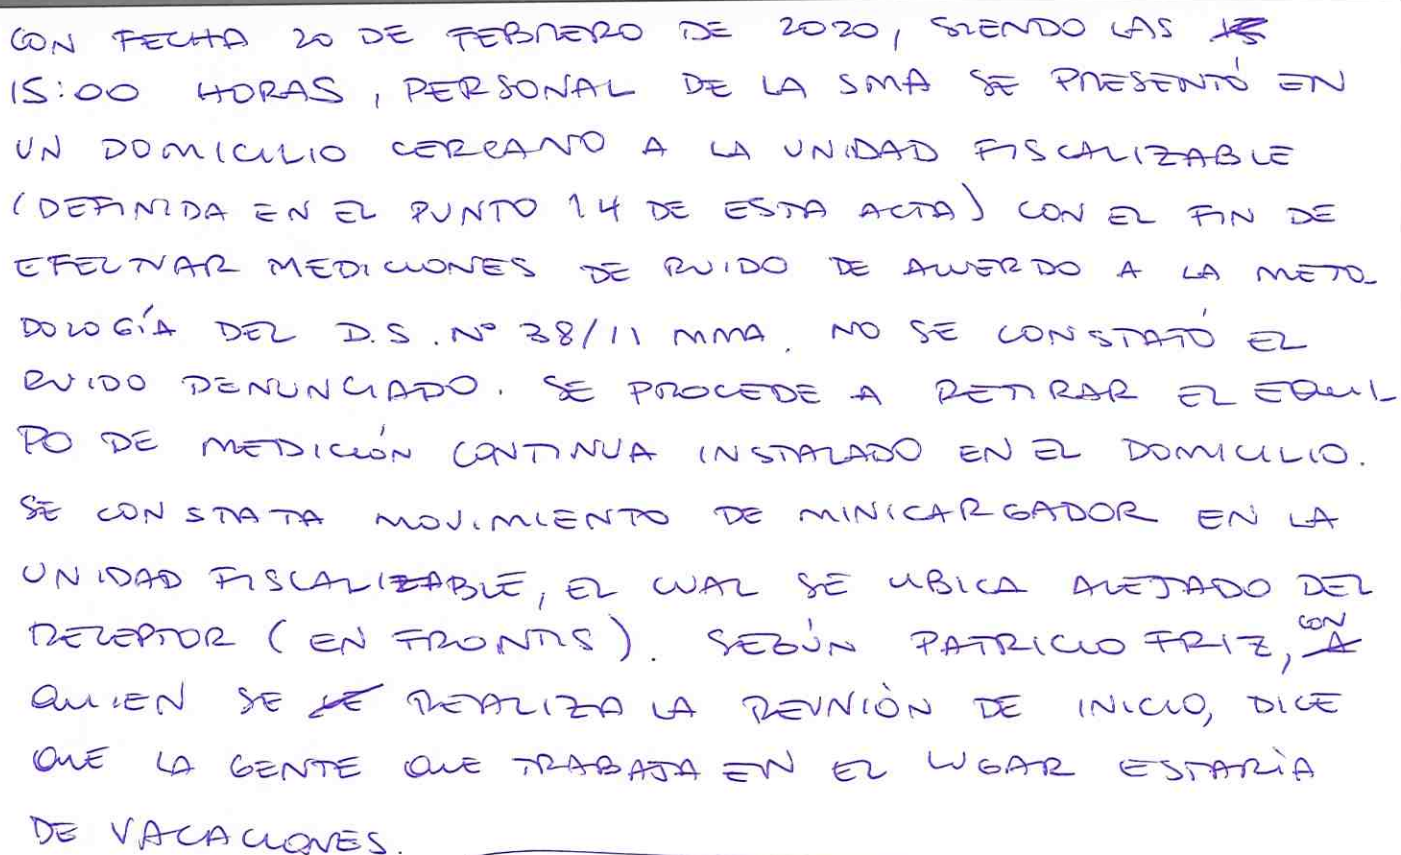 CON FECHA 20 DE FEBRERO DE 2020, SIENDO LAS
15:00 HORAS, PERSONAL DE LA SMA SE PRESENTÓ EN
UN DOMICILIO CERCANO A LA UNIDAD FISCALIZABLE
(DEFINIDA EN EL PUNTO 1.4 DE ESTA ACTA) CON EL FIN DE
EFECTUAR MEDICIONES DE RUIDO DE ACUERDO A LA METO-
DOLOGÍA DEL D.S. N° 38/11 MMA. NO SE CONSTATÓ EL
RUIDO DENUNCIADO. SE PROCEDE A RETIRAR EL EQUI-
PO DE MEDICIÓN CONTINUA INSTALADO EN EL DOMICILIO.
SE CONSTATA MOVIMIENTO DE MINICARGADOR EN LA
UNIDAD FISCALIZABLE, EL CUAL SE UBICA ALEJADO DEL
RECEPTOR (EN FRONTIS). SEGÚN PATRICIO FRIZ, CON
QUIEN SE REALIZA LA REUNIÓN DE INICIO, DICE
QUE LA GENTE QUE TRABAJA EN EL LUGAR ESTARÍA
DE VACACIONES.